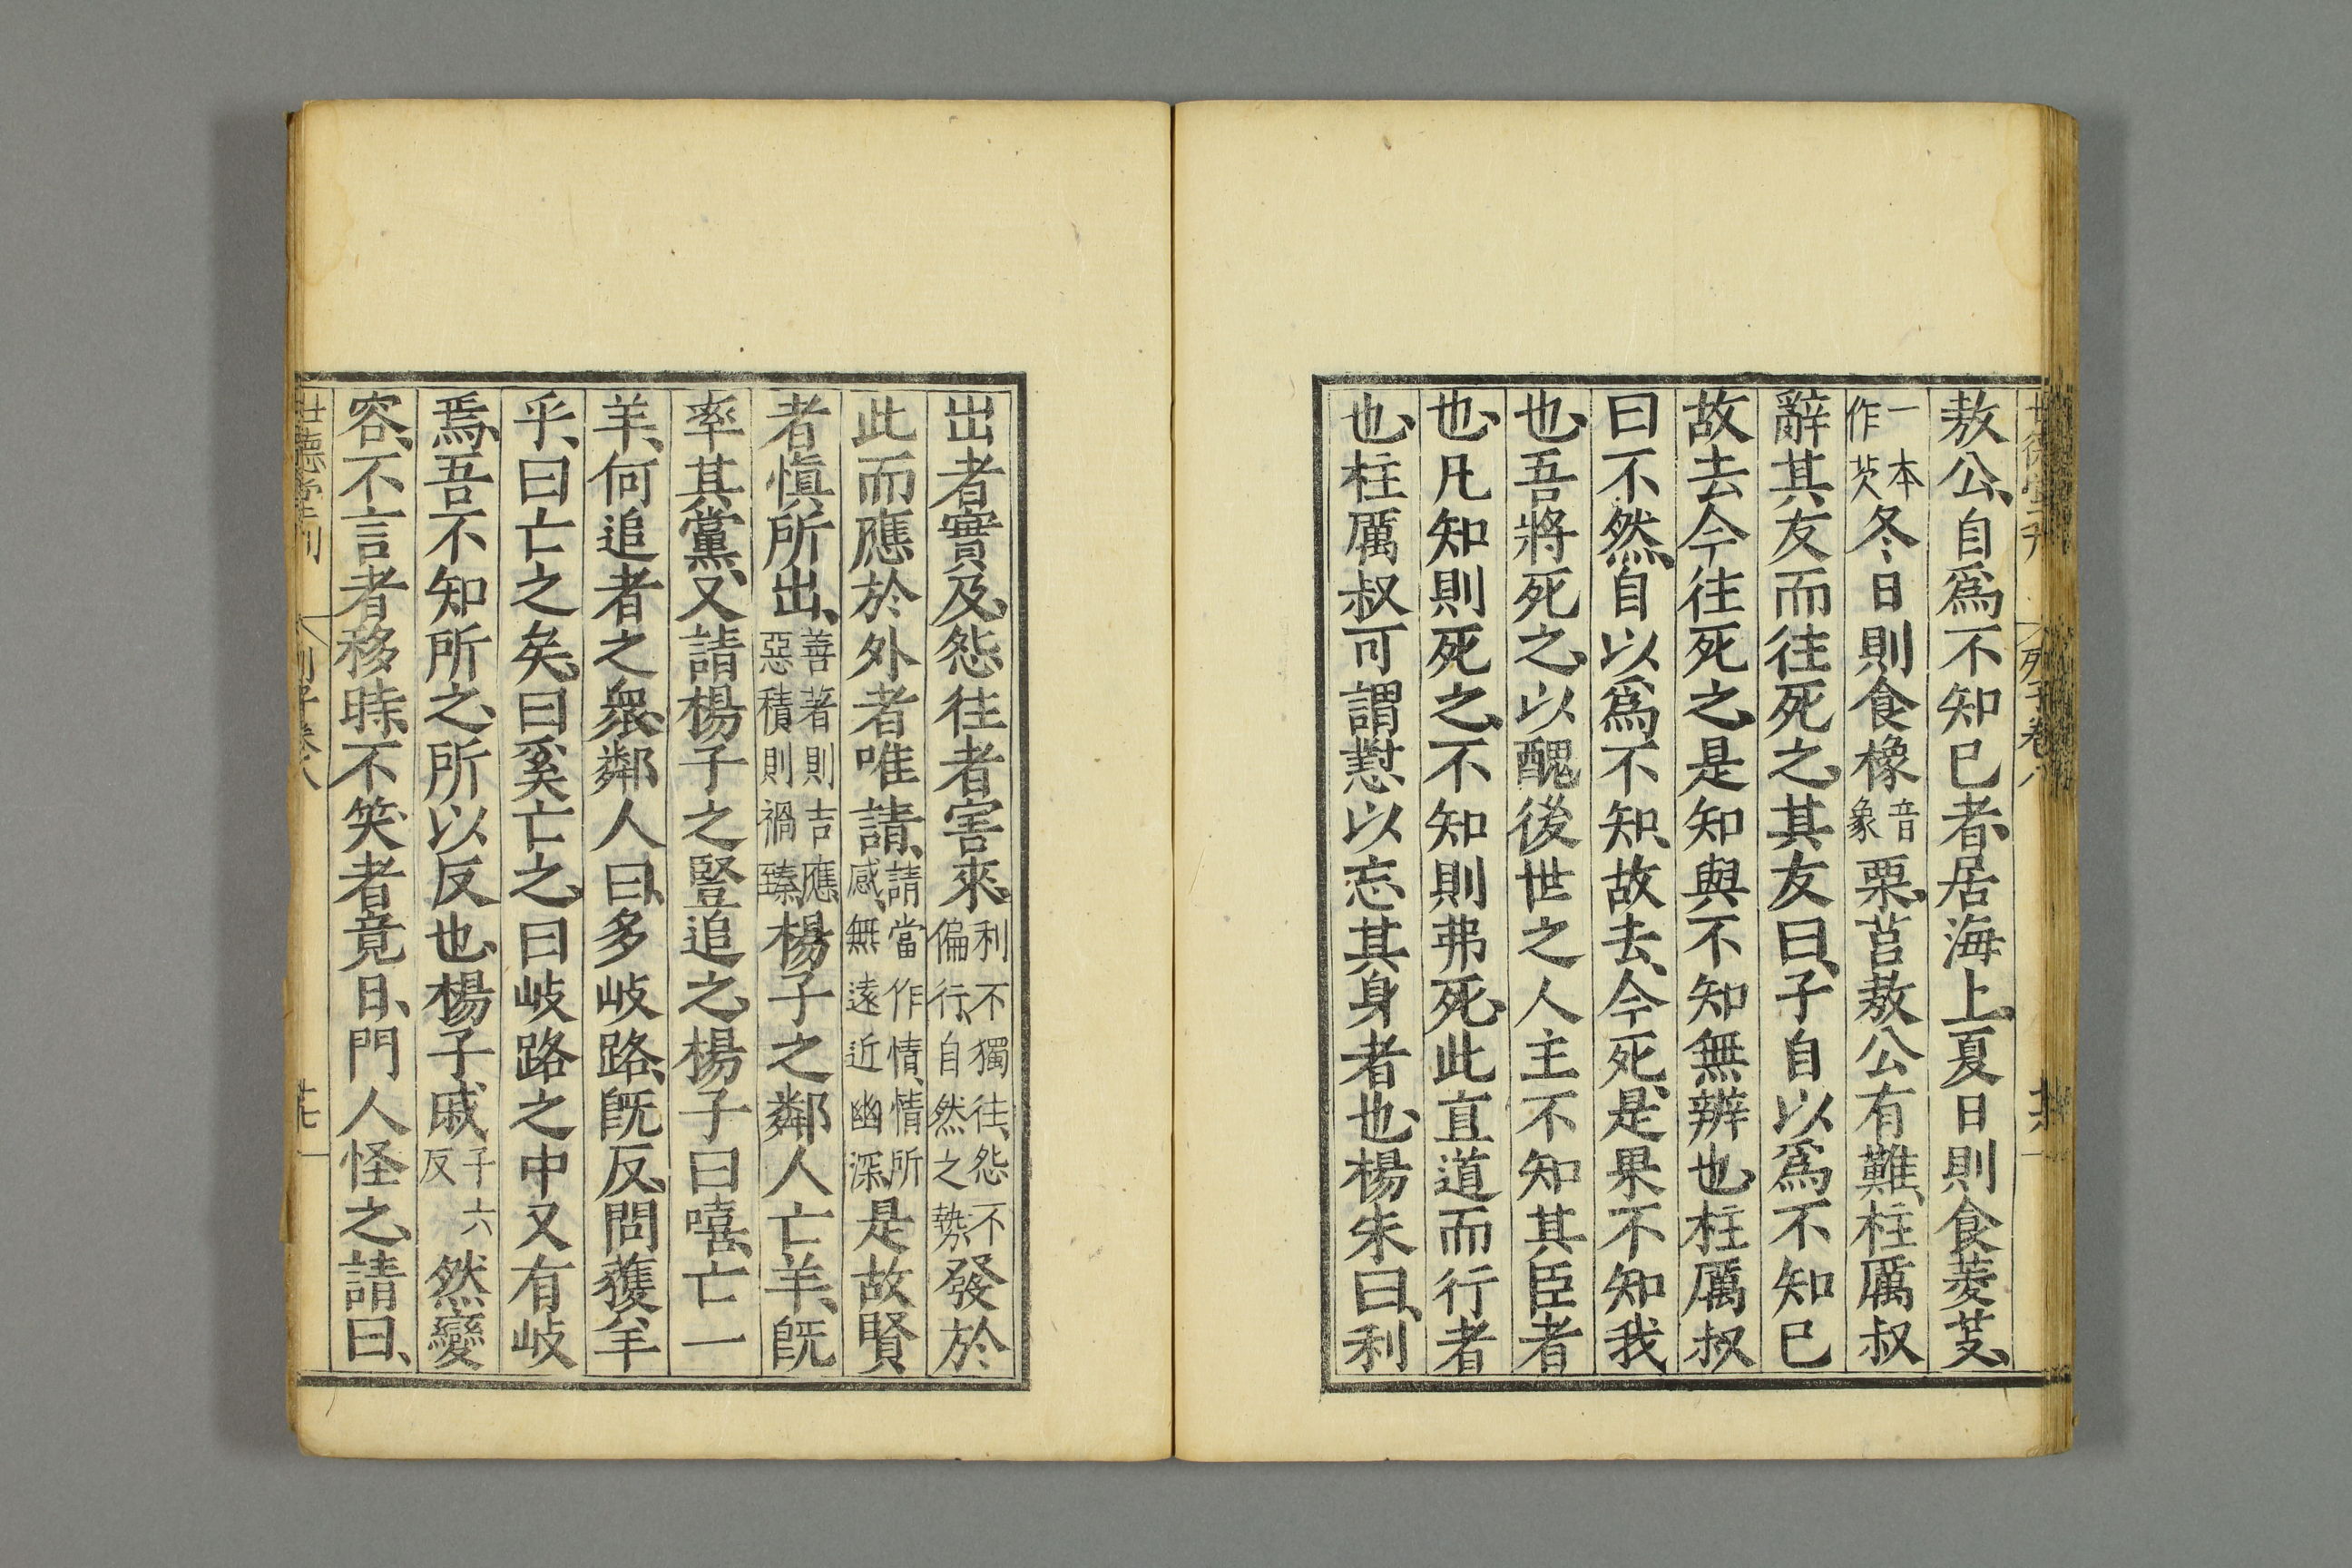 敖公、自爲不知已者、居海上、夏日則食菱芰、
一本作茨冬日則食橡音象栗、莒敖公有難、柱厲叔
辭其友而往死之、其友曰、子自以爲不知已
故去今往死之、是知與不知無辨也、柱厲叔
曰不然、自以爲不知、故去、今死、是果不知我
也、吾將死之、以醜後世之人主不知其臣者
也、凡知則死之、不知則弗死、此直道而行者
也、柱厲叔可謂懟以忘其身者也、楊朱曰、利
出者實及、怨往者害來、利不獨往、怨不偏行、自然之勢發於
此而應於外者唯請、請當作情、情所感、無遠近幽深、是故賢
者愼所出、善著則吉應、惡積則禍臻、楊子之鄰人亡羊、旣
率其黨、又請楊子之豎追之、楊子曰嘻、亡一
羊、何追者之衆、鄰人曰、多岐路、旣反、問獲羊
乎、曰亡之矣、曰奚亡之、曰岐路之中又有岐
焉、吾不知所之、所以反也、楊子戚子六反然變
容、不言者移時、不笑者竟日、門人怪之、請曰、
世德堂刊
列子卷八